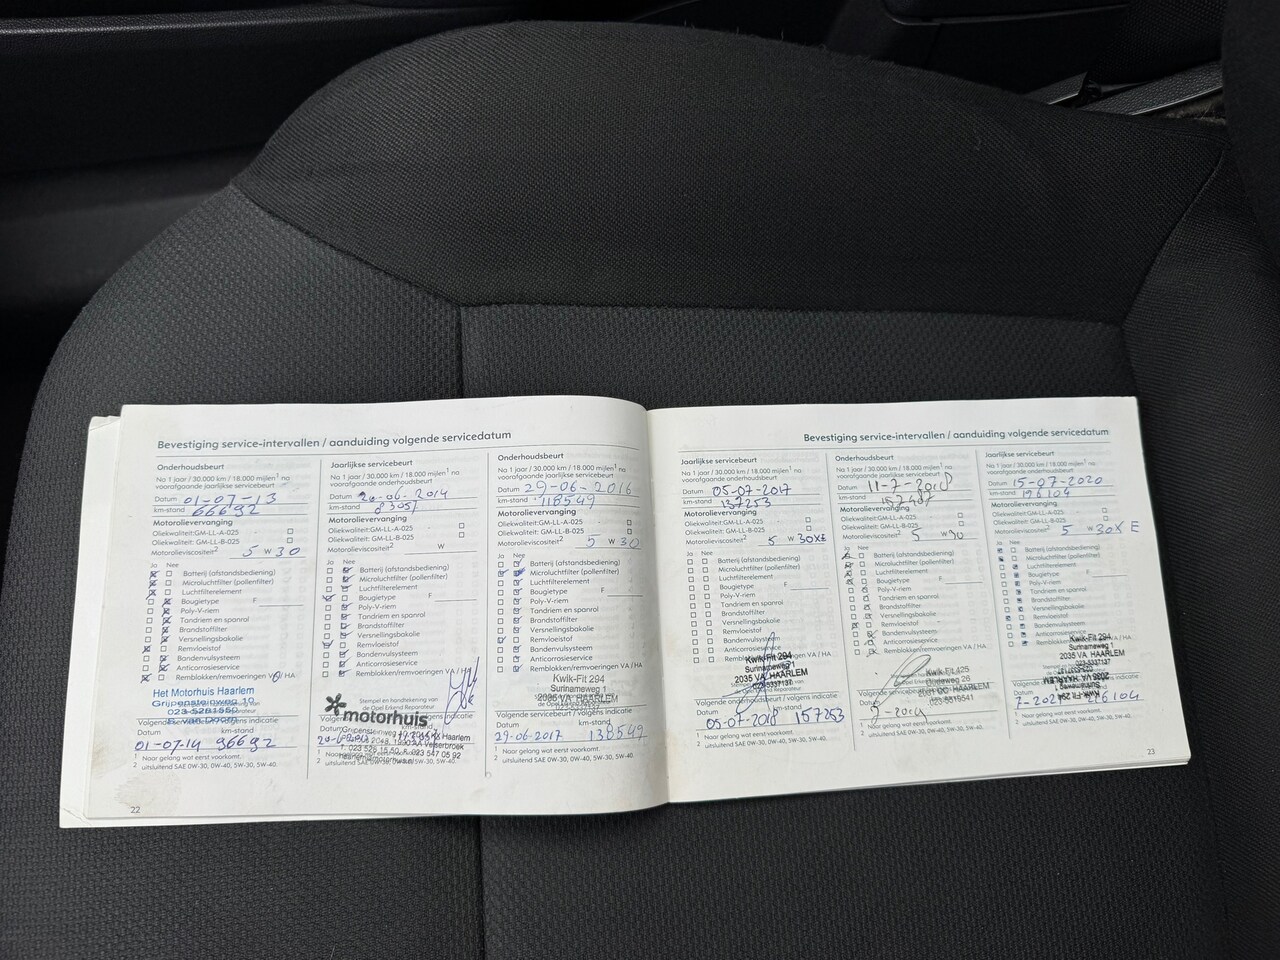 Bevestiging service-intervallen / aanduiding volgende servicedatum
Onderhoudsbeurt
Na 1 jaar / 30.000 km / 18.000 mijlen¹ na
voorafgaande jaarlijkse servicebeurt
Datum 01-07-13
km-stand 66692
Motorolievervanging
Oliekwaliteit: GM-LL-A-025
Oliekwaliteit: GM-LL-B-025
Motorolieviscositeit² 5 W 30
Ja Nee
Batterij (afstandsbediening)
Microluchtfilter (pollenfilter)
Luchtfilterelement
Bougietype F
Poly-V-riem
Tandriem en spanrol
Brandstoffilter
Versnellingsbakolie
Remvloeistof
Bandenvulsysteem
Anticorrosieservice
Remblokken/remvoeringen VA / HA
Het Motorhuis Haarlem
Grijpensteinweg 10
Datum
01-07-14 96692
¹ Naar gelang wat eerst voorkomt.
² uitsluitend SAE 0W-30, 0W-40, 5W-30, 5W-40.
22
Jaarlijkse servicebeurt
Na 1 jaar / 30.000 km / 18.000 mijlen¹ na
voorafgaande onderhoudsbeurt
Datum 20-06-2014
km-stand
Motorolievervanging
Oliekwaliteit: GM-LL-A-025
Oliekwaliteit: GM-LL-B-025
Motorolieviscositeit² W
Ja Nee
Batterij (afstandsbediening)
Microluchtfilter (pollenfilter)
Luchtfilterelement
Bougietype F
Poly-V-riem
Tandriem en spanrol
Brandstoffilter
Versnellingsbakolie
Remvloeistof
Bandenvulsysteem
Anticorrosieservice
Remblokken/remvoeringen VA / HA
Stempel en handtekening van
de Opel Erkend Reparateur
motorhuis
¹ Naar gelang wat eerst voorkomt.
² uitsluitend SAE 0W-30, 0W-40, 5W-30, 5W-40.
Onderhoudsbeurt
Na 1 jaar / 30.000 km / 18.000 mijlen¹ na
voorafgaande jaarlijkse servicebeurt
Datum 29-06-2016
km-stand 118549
Motorolievervanging
Oliekwaliteit: GM-LL-A-025
Oliekwaliteit: GM-LL-B-025
Motorolieviscositeit² 5 W 30
Ja Nee
Batterij (afstandsbediening)
Microluchtfilter (pollenfilter)
Luchtfilterelement
Bougietype F
Poly-V-riem
Tandriem en spanrol
Brandstoffilter
Versnellingsbakolie
Remvloeistof
Bandenvulsysteem
Anticorrosieservice
Remblokken/remvoeringen VA / HA
Kwik-Fit 294
Surinameweg 1
2035 VA HAARLEM
Volgende servicebeurt / volgens indicatie
Datum km-stand
29-06-2017 138549
¹ Naar gelang wat eerst voorkomt.
² uitsluitend SAE 0W-30, 0W-40, 5W-30, 5W-40.
Bevestiging service-intervallen / aanduiding volgende servicedatum
Jaarlijkse servicebeurt
Na 1 jaar / 30.000 km / 18.000 mijlen¹ na
voorafgaande onderhoudsbeurt
Datum 05-07-2017
km-stand 137253
Motorolievervanging
Oliekwaliteit: GM-LL-A-025
Oliekwaliteit: GM-LL-B-025
Motorolieviscositeit² 5 W 30XE
Ja Nee
Batterij (afstandsbediening)
Microluchtfilter (pollenfilter)
Luchtfilterelement
Bougietype F
Poly-V-riem
Tandriem en spanrol
Brandstoffilter
Versnellingsbakolie
Remvloeistof
Bandenvulsysteem
Anticorrosieservice
Remblokken/remvoeringen VA / HA
Kwik-Fit 294
Surinameweg 1
2035 VA HAARLEM
023-5337137
Volgende onderhoudsbeurt / volgens indicatie
Datum km-stand
05-07-2018 157253
¹ Naar gelang wat eerst voorkomt.
² uitsluitend SAE 0W-30, 0W-40, 5W-30, 5W-40.
Onderhoudsbeurt
Na 1 jaar / 30.000 km / 18.000 mijlen¹ na
voorafgaande jaarlijkse servicebeurt
Datum 11-7-2018
km-stand
Motorolievervanging
Oliekwaliteit: GM-LL-A-025
Oliekwaliteit: GM-LL-B-025
Motorolieviscositeit² 5 W 30
Ja Nee
Batterij (afstandsbediening)
Microluchtfilter (pollenfilter)
Luchtfilterelement
Bougietype F
Poly-V-riem
Tandriem en spanrol
Brandstoffilter
Versnellingsbakolie
Remvloeistof
Bandenvulsysteem
Anticorrosieservice
Remblokken/remvoeringen VA / HA
Kwik-Fit 425
HAARLEM
Datum
¹ Naar gelang wat eerst voorkomt.
² uitsluitend SAE 0W-30, 0W-40, 5W-30, 5W-40.
Jaarlijkse servicebeurt
Na 1 jaar / 30.000 km / 18.000 mijlen¹ na
voorafgaande onderhoudsbeurt
Datum 15-07-2020
km-stand 196104
Motorolievervanging
Oliekwaliteit: GM-LL-A-025
Oliekwaliteit: GM-LL-B-025
Motorolieviscositeit² 5 W 30X E
Ja Nee
Batterij (afstandsbediening)
Microluchtfilter (pollenfilter)
Luchtfilterelement
Bougietype F
Poly-V-riem
Tandriem en spanrol
Brandstoffilter
Versnellingsbakolie
Remvloeistof
Bandenvulsysteem
Anticorrosieservice
Remblokken/remvoeringen VA / HA
Kwik-Fit 294
Surinameweg 1
2035 VA HAARLEM
023-5337137
Datum
¹ Naar gelang wat eerst voorkomt.
² uitsluitend SAE 0W-30, 0W-40, 5W-30, 5W-40.
23